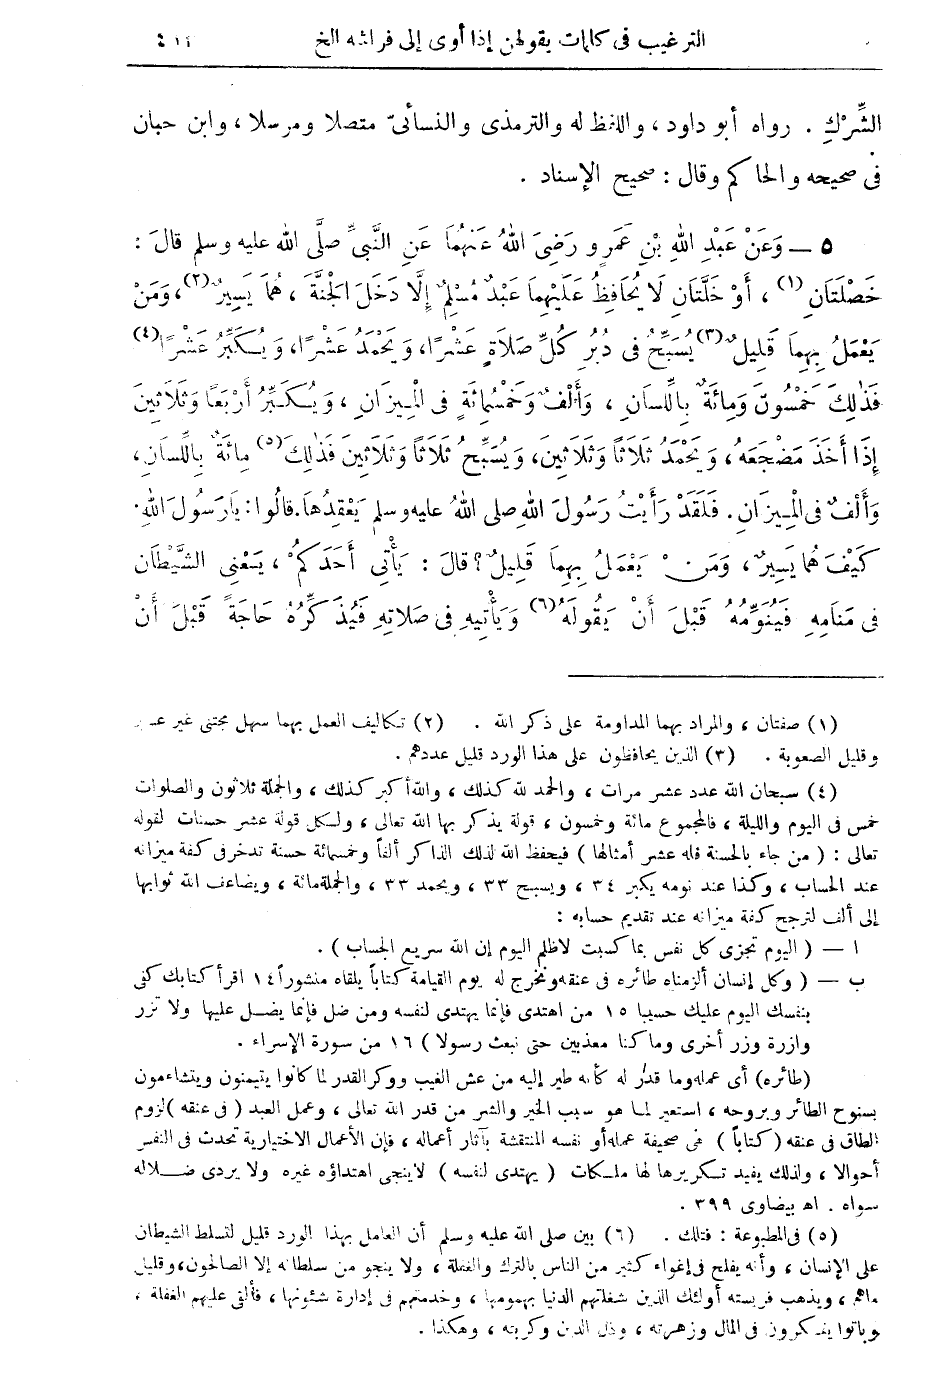 الترغيب فى كلمات يقولهن إذا أوى إلى فراشه الخ
الشِّرْكِ . رواه أبو داود ، واللفظ له والترمذى والنسائىّ متصلا ومرسلا ، وابن حبان
فى صحيحه والحاكم وقال : صحيح الإسناد .
٥ — وَعَنْ عَبْدِ اللهِ بْنِ عَمَرٍو رَضِىَ اللهُ عَنْهُمَا عَنِ النَّبِىِّ صَلَّى الله عليه وسلم قالَ :
خَصْلَتَانِ (١) ، أَوْ خَلَّتَانِ لَا يُحَافِظُ عَلَيْهِمَا عَبْدٌ مُسْلِمٌ إِلَّا دَخَلَ الْجَنَّةَ ، هُمَا يَسِيرٌ (٢) ، وَمَنْ
يَعْمَلُ بِهِمَا قَلِيلٌ (٣) يُسَبِّحُ فى دُبُرِ كُلِّ صَلَاةٍ عَشْرًا، وَيَحْمَدُ عَشْرًا، وَيُكَبِّرُ عَشْرًا (٤)
فَذٰلِكَ خَمْسُونَ وَمِائَةٌ بِاللِّسَانِ ، وَأَلْفٌ وَخَمْسُمِائَةٍ فى الْمِيزَانِ ، وَيُكَبِّرُ أَرْبَعًا وَثَلَاثِينَ
إِذَا أَخَذَ مَضْجَعَهُ ، وَيَحْمَدُ ثَلَاثًا وَثَلَاثِينَ، وَيُسَبِّحُ ثَلَاثًا وَثَلَاثِينَ فَذٰلِكَ (٥) مِائَةٌ بِاللِّسَانِ،
وَأَلْفٌ فى الْمِيزَانِ . فَلَقَدْ رَأَيْتُ رَسُولَ اللهِ صلى اللهُ عليه وسلم يَعْقِدُهَا. قالُوا : يَارَسُولَ اللهِ
كَيْفَ هُمَا يَسِيرٌ ، وَمَنْ يَعْمَلُ بِهِمَا قَلِيلٌ ؟ قالَ : يَأْتِى أَحَدَكُمْ ، يَعْنِى الشَّيْطَانَ
فى مَنَامِهِ فَيُنَوِّمُهُ قَبْلَ أَنْ يَقُولَهُ (٦) وَيَأْتِيهِ فى صَلَاتِهِ فَيُذَكِّرُهُ حَاجَةً قَبْلَ أَنْ
(١) صفتان ، والمراد بهما المداومة على ذكر الله . (٢) تكاليف العمل بهما سهل مجتنى غير
وقليل الصعوبة . (٣) الذين يحافظون على هذا الورد قليل عددهم .
(٤) سبحان الله عدد عشر مرات ، والحمد لله كذلك ، والله أكبر كذلك ، والجملة ثلاثون والصلوات
خمس فى اليوم والليلة ، فالمجموع مائة وخمسون ، قولة يذكر بها الله تعالى ، ولكل قولة عشر حسنات لقوله
تعالى : ( من جاء بالحسنة فله عشر أمثالها ) فيحفظ الله لذلك الذاكر ألفاً وخمسمائة حسنة تدخر فى كفة ميزانه
عند الحساب ، وكذا عند نومه يكبر ٣٤ ، ويسبح ٣٣ ، ويحمد ٣٣ ، والجملة مائة ، ويضاعف الله ثوابها
إلى ألف لترجح كفة ميزانه عند تقديم حسابه :
ا — ( اليوم تجزى كل نفس بما كسبت لاظلم اليوم إن الله سريع الحساب ) .
ب — ( وكل إنسان ألزمناه طائره فى عنقه ونخرج له يوم القيامة كتاباً يلقاه منشوراً ١٤ اقرأ كتابك كفى
بنفسك اليوم عليك حسيبا ١٥ من اهتدى فإنما يهتدى لنفسه ومن ضل فإنما يضل عليها ولا تزر
وازرة وزر أخرى وما كنا معذبين حتى نبعث رسولا ) ١٦ من سورة الإسراء .
(طائره) أى عمله وما قدر له كأنه طير إليه من عش الغيب ووكر القدر لما كانوا يتيمنون ويتشاءمون
بسنوح الطائر وبروحه ، استعير لما هو سبب الخير والشر من قدر الله تعالى ، وعمل العبد ( فى عنقه ) لزوم
الطاق فى عنقه ( كتاباً ) فى صحيفة عمله أو نفسه المنتقشة بآثار أعماله ، فإن الأعمال الاختيارية تحدث فى النفس
أحوالا ، ولذلك يفيد تكريرها لها ملكات ( يهتدى لنفسه ) لاينجى اهتداؤه غيره ولا يردى ضلاله
سواه . اه بيضاوى ٣٩٩ .
(٥) فى المطبوعة : فتلك . (٦) بين صلى الله عليه وسلم أن العامل بهذا الورد قليل لتسلط الشيطان
على الإنسان ، وأنه يفلح فى إغواء كثير من الناس بالترك والغفلة ، ولا ينجو من سلطانه إلا الصالحون، وقليل
ماهم ، ويذهب فريسته أولئك الذين شغلتهم الدنيا بهمومها ، وخدمتهم فى إدارة شئونها ، فألقى عليهم الغفلة ،
وباتوا يفكرون فى المال وزهرته ، وذل الدين وكربته ، وهكذا .